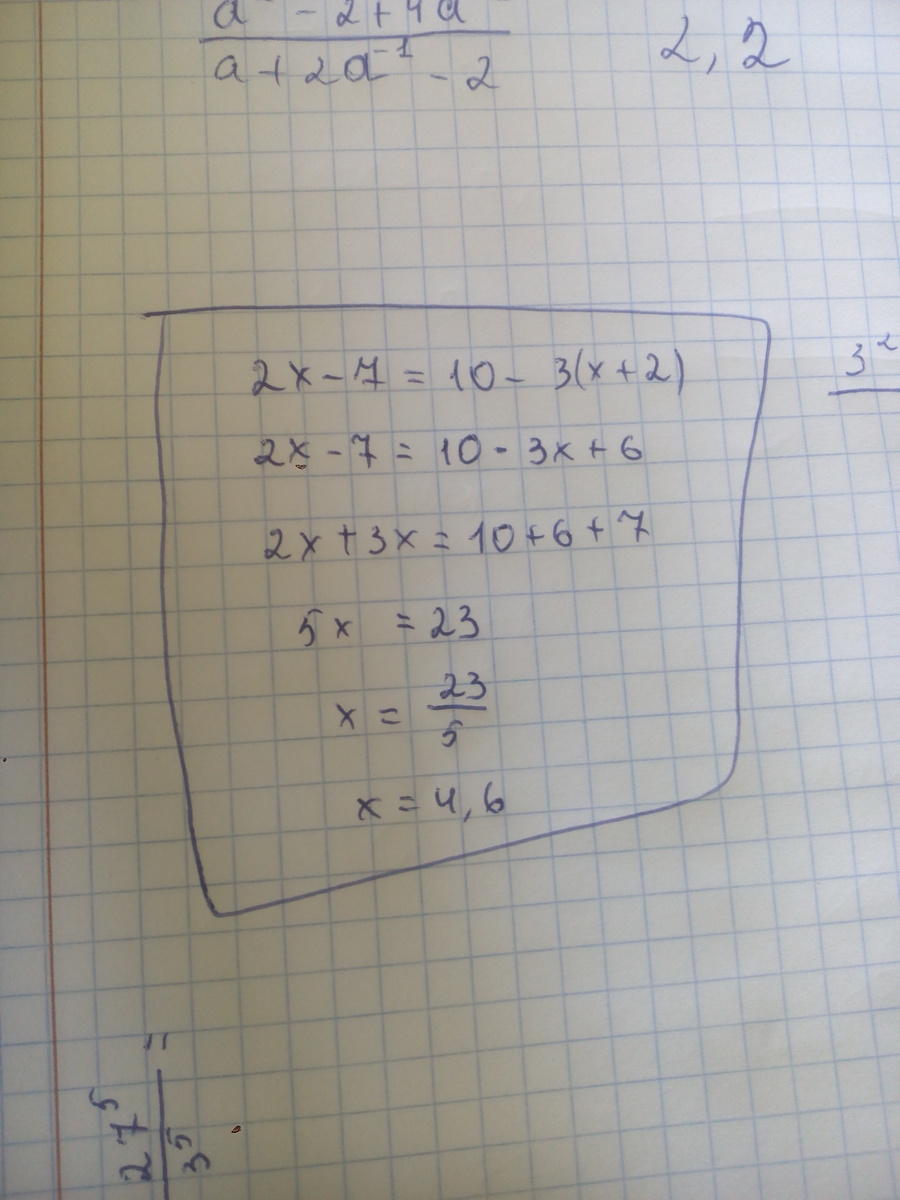 a - 2 + 4a
a + 2a⁻¹ - 2
2, 2
2x - 7 = 10 - 3(x + 2)
3²
2x - 7 = 10 - 3x + 6
2x + 3x = 10 + 6 + 7
5x = 23
x = 23/5
x = 4,6
27⁵/3⁵ =